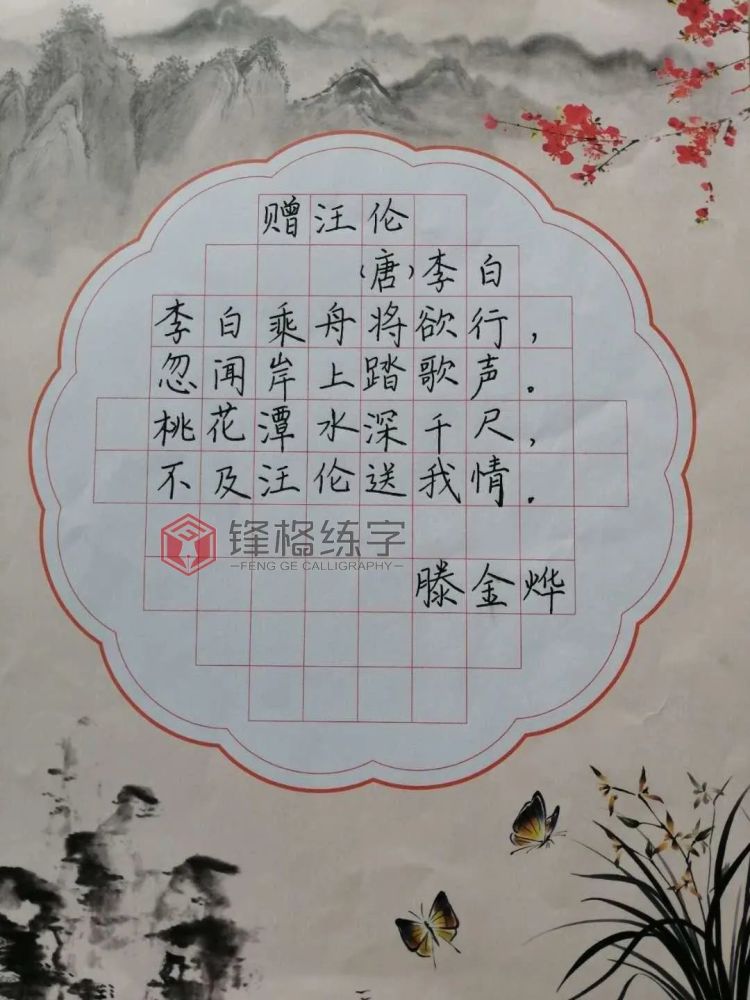 赠汪伦
（唐）李白
李白乘舟将欲行，
忽闻岸上踏歌声。
桃花潭水深千尺，
不及汪伦送我情。
锋格练字
—FENG GE CALLIGRAPHY—
滕金烨